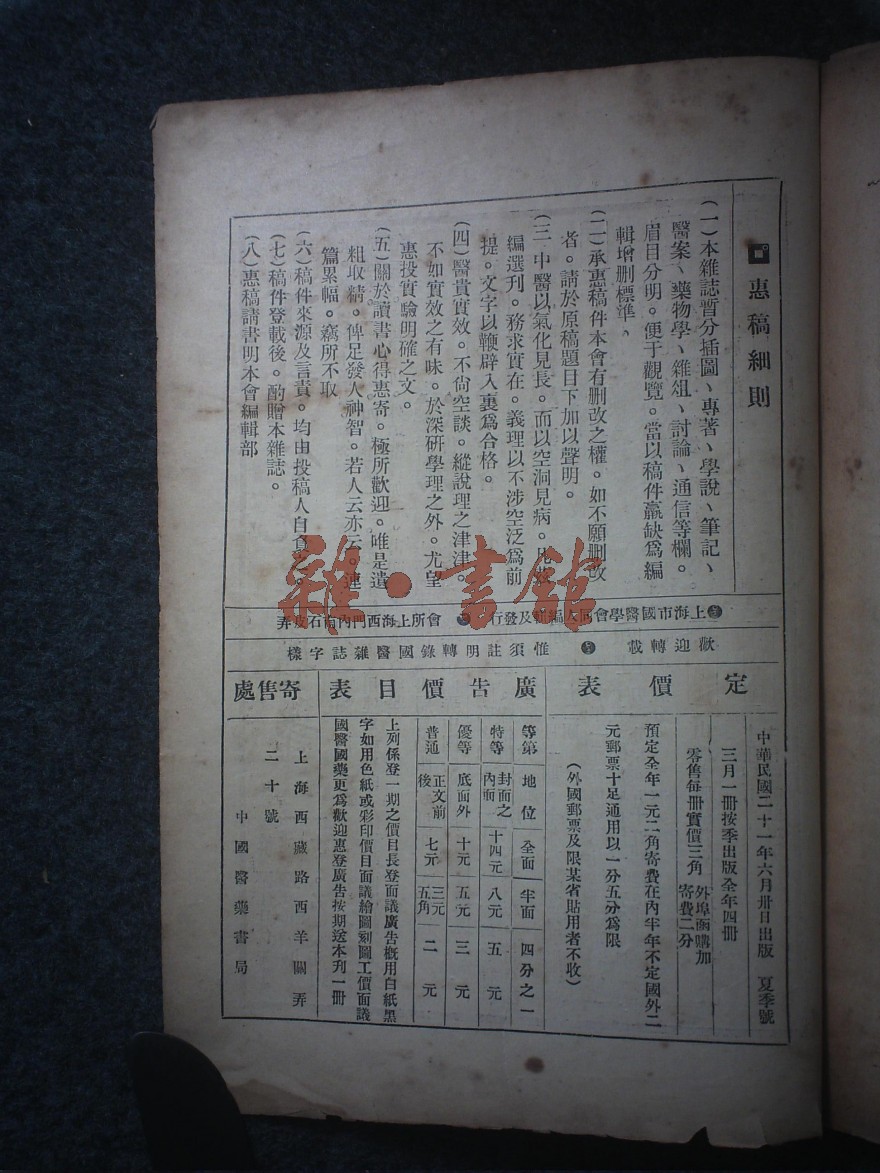 惠稿細則
(一)本雜誌暫分插圖、專著、學說、筆記、
醫案、藥物學、雜俎、討論、通信等欄。
眉目分明。便于觀覽。當以稿件羸缺爲編
輯增删標準。
(二)承惠稿件本會有删改之權。如不願删改
者。請於原稿題目下加以聲明。
(三)中醫以氣化見長。而以空洞見病。凡
編選刊。務求實在。義理以不涉空泛爲前
提。文字以鞭辟入裏爲合格。
(四)醫貴實效。不尙空談。縱說理之津津。
不如實效之有味。於深研學理之外。尤望
惠投實驗明確之文。
(五)關於讀書心得惠寄。極所歡迎。唯是遺
粗取精。俾足發人神智。若人云亦云。連
篇累幅。竊所不取
(六)稿件來源及言責。均由投稿人自負之。
(七)稿件登載後。酌贈本雜誌。
(八)惠稿請書明本會編輯部
上海市國醫學會同人編輯及發行 會所上海西門內南石皮弄
歡迎轉載 惟須註明轉錄國醫雜誌字樣
定價表
中華民國二十一年六月卅日出版 夏季號
三月一冊按季出版全年四冊
零售每冊實價三角 外埠函購加寄費二分
預定全年一元二角寄費在內半年不定國外二
元郵票十足通用以一分五分爲限
(外國郵票及限某省貼用者不收)
廣告價目表
等第 地位 全面 半面 四分之一
特等 封面之內面 十四元 八元 五元
優等 底面外 十元 五元 三元
普通 正文前後 七元 三元五角 二元
上列係登一期之價目長登面議廣告概用白紙黑
字如用色紙或彩印價目面議繪圖刻圖工價面議
國醫國藥更爲歡迎惠登廣告按期送本刊一冊
寄售處
上海西藏路西羊關弄
二十號
中國醫藥書局
雜·書館